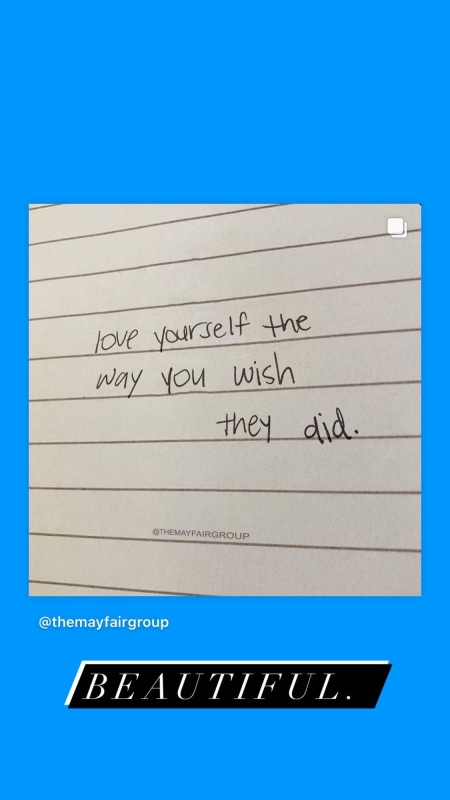 love yourself the
way you wish
they did.
@THEMAYFAIRGROUP
@themayfairgroup
BEAUTIFUL.